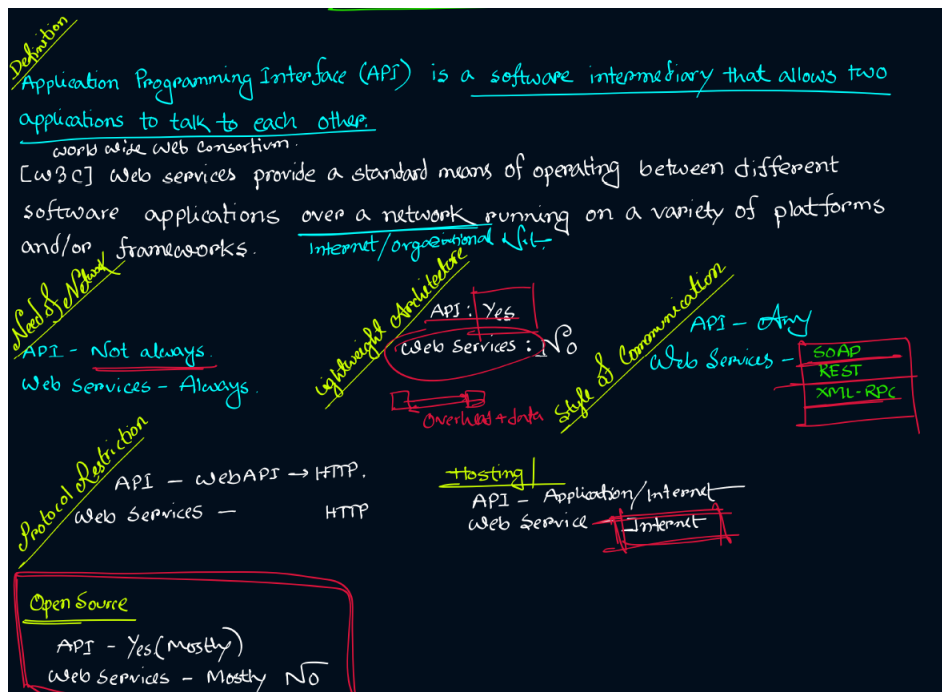 Definition
Application Programming Interface (API) is a software intermediary that allows two
applications to talk to each other.
world wide web consortium.
[W3C] Web services provide a standard means of operating between different
software applications over a network running on a variety of platforms
and/or frameworks.
Internet/organizational
Need of Network
API - Not always.
Web Services - Always.
Lightweight Architecture
API : Yes
Web Services : No
Overhead + data
Style of Communication
API - Any
Web Services -
SOAP
REST
XML-RPC
Protocol Restriction
API - WebAPI → HTTP.
Web Services - HTTP
Hosting
API - Application/Internet
Web Service - Internet
Open Source
API - Yes (Mostly)
Web Services - Mostly No